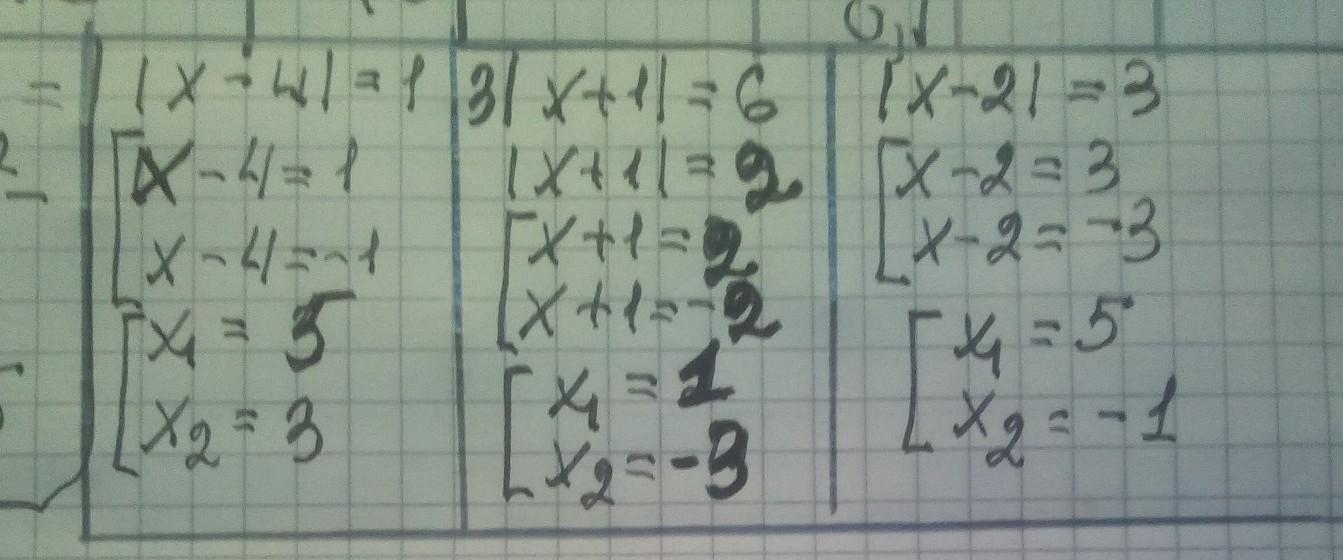 |x-4|=1
x-4=1
x-4=-1
x1=5
x2=3
3|x+1|=6
|x+1|=2
x+1=2
x+1=-2
x1=1
x2=-3
|x-2|=3
x-2=3
x-2=-3
x1=5
x2=-1